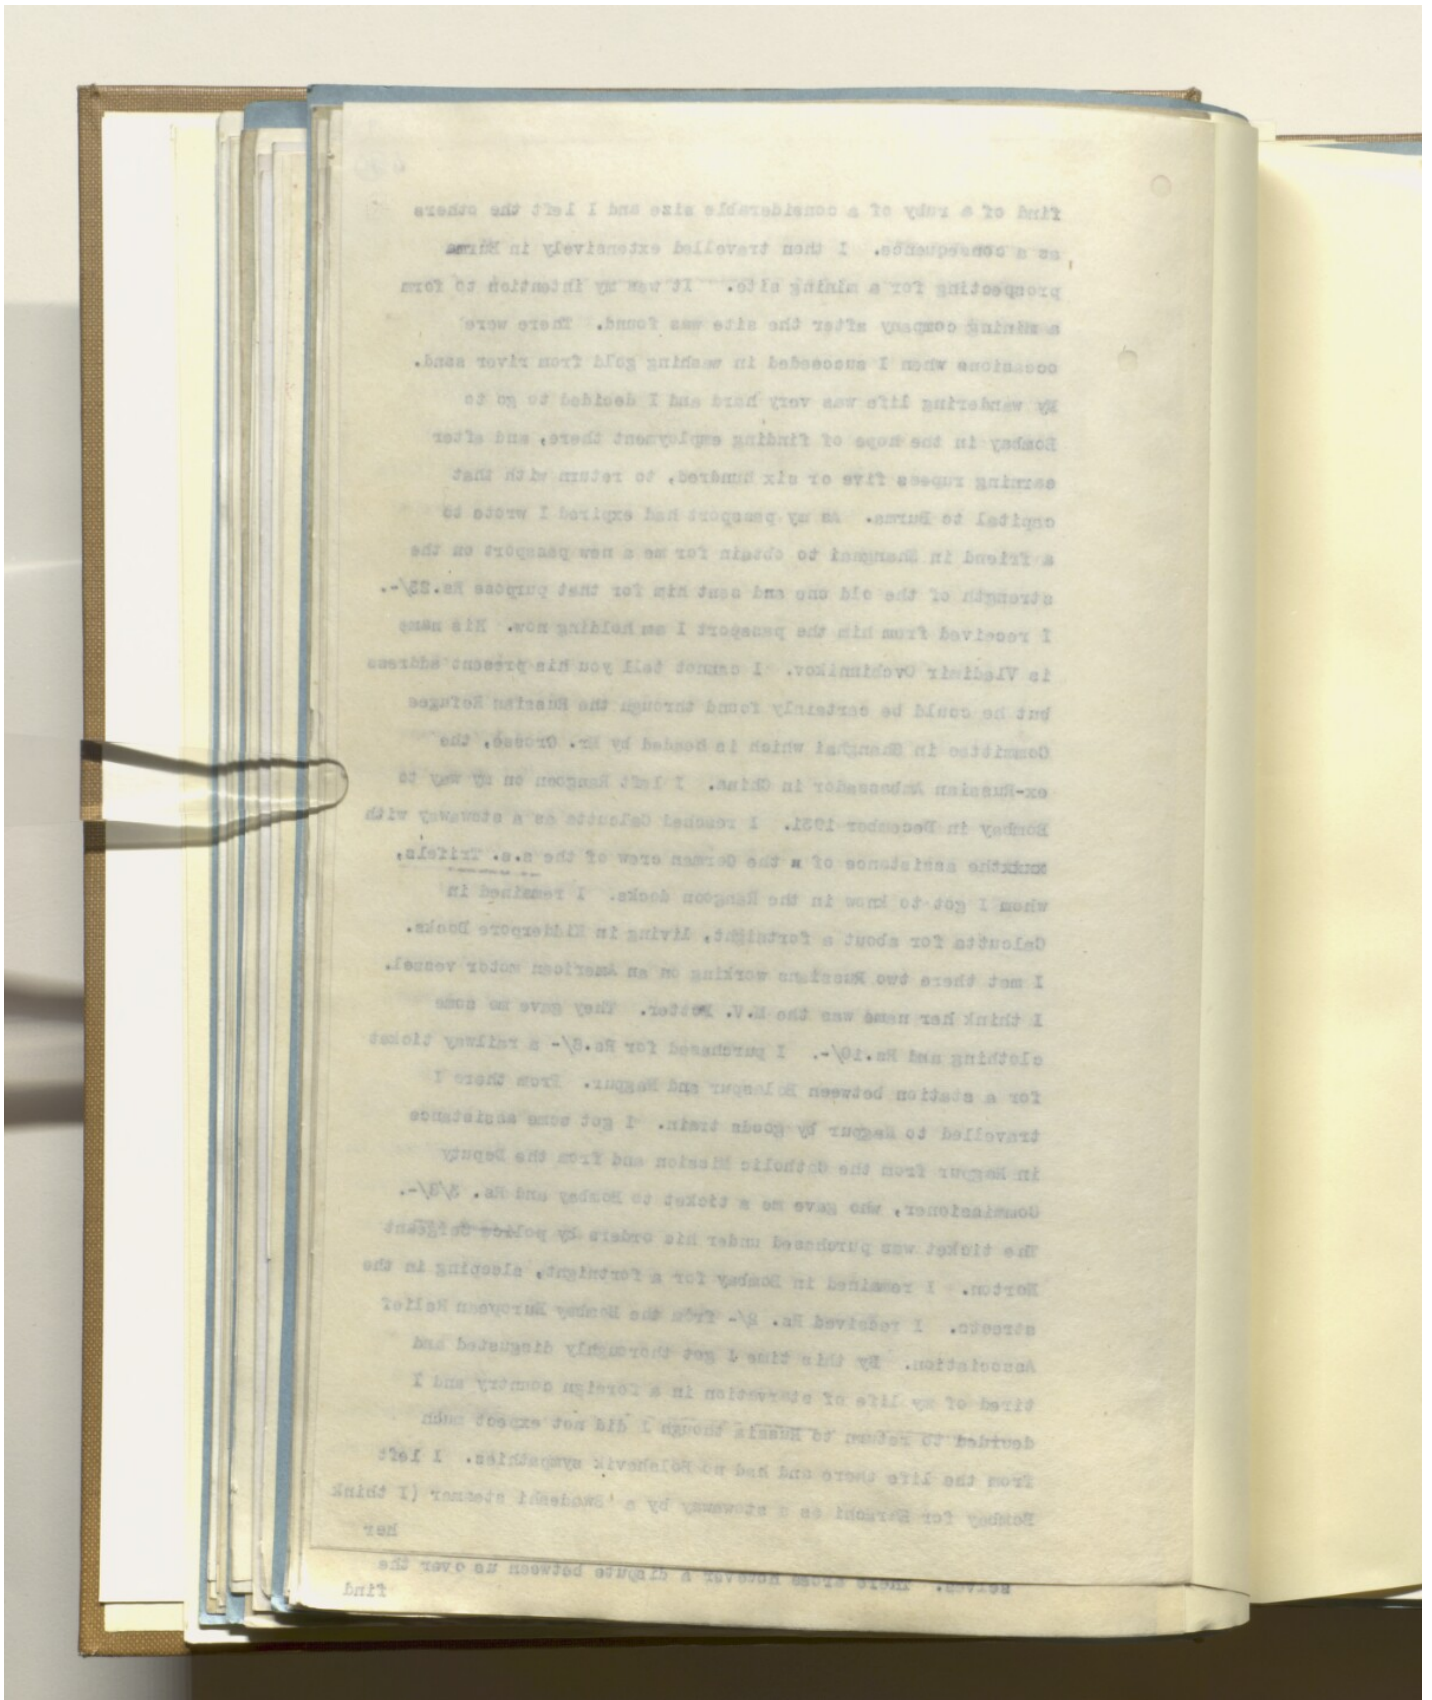 find of a ruby of a considerable size and I left the others
as a consequence. I then travelled extensively in Burma
prospecting for a mining site. It was my intention to form
a mining company after the site was found. There were
occasions when I succeeded in washing gold from river sand.
My wandering life was very hard and I decided to go to
Bombay in the hope of finding employment there, and after
earning rupees five or six hundred, to return with that
capital to Burma. As my passport had expired I wrote to
a friend in Shanghai to obtain for me a new passport on the
strength of the old one and sent him for that purpose Rs.25/-.
I received from him the passport I am holding now. His name
is Vladimir Ovchinnikov. I cannot tell you his present address
but he could be certainly found through the Russian Refugee
Committee in Shanghai which is headed by Mr. Grosse, the
ex-Russian Ambassador in China. I left Rangoon on my way to
Bombay in December 1931. I reached Calcutta as a stowaway with
the assistance of the German crew of the s.s. Trifels,
whom I got to know in the Rangoon docks. I remained in
Calcutta for about a fortnight, living in Kidderpore Docks.
I met there two Russians working on an American motor vessel.
I think her name was the M.V. Potter. They gave me some
clothing and Rs.10/-. I purchased for Rs.8/- a railway ticket
for a station between Bolaspur and Nagpur. From there I
travelled to Nagpur by goods train. I got some assistance
in Nagpur from the Catholic Mission and from the Deputy
Commissioner, who gave me a ticket to Bombay and Rs. 3/8/-.
The ticket was purchased under his orders by police Sergeant
Horton. I remained in Bombay for a fortnight, sleeping in the
streets. I received Rs. 2/- from the Bombay European Relief
Association. By this time I got thoroughly disgusted and
tired of my life of starvation in a foreign country and I
decided to return to Russia though I did not expect much
from the life there and had no Bolshevik sympathies. I left
Bombay for Karachi as a stowaway by a 'Swadeshi steamer (I think
her
selves. There arose however a dispute between us over the
find